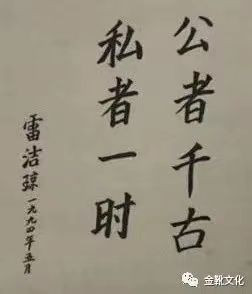 公者千古
私者一时
雷洁琼一九九四年五月
金靴文化